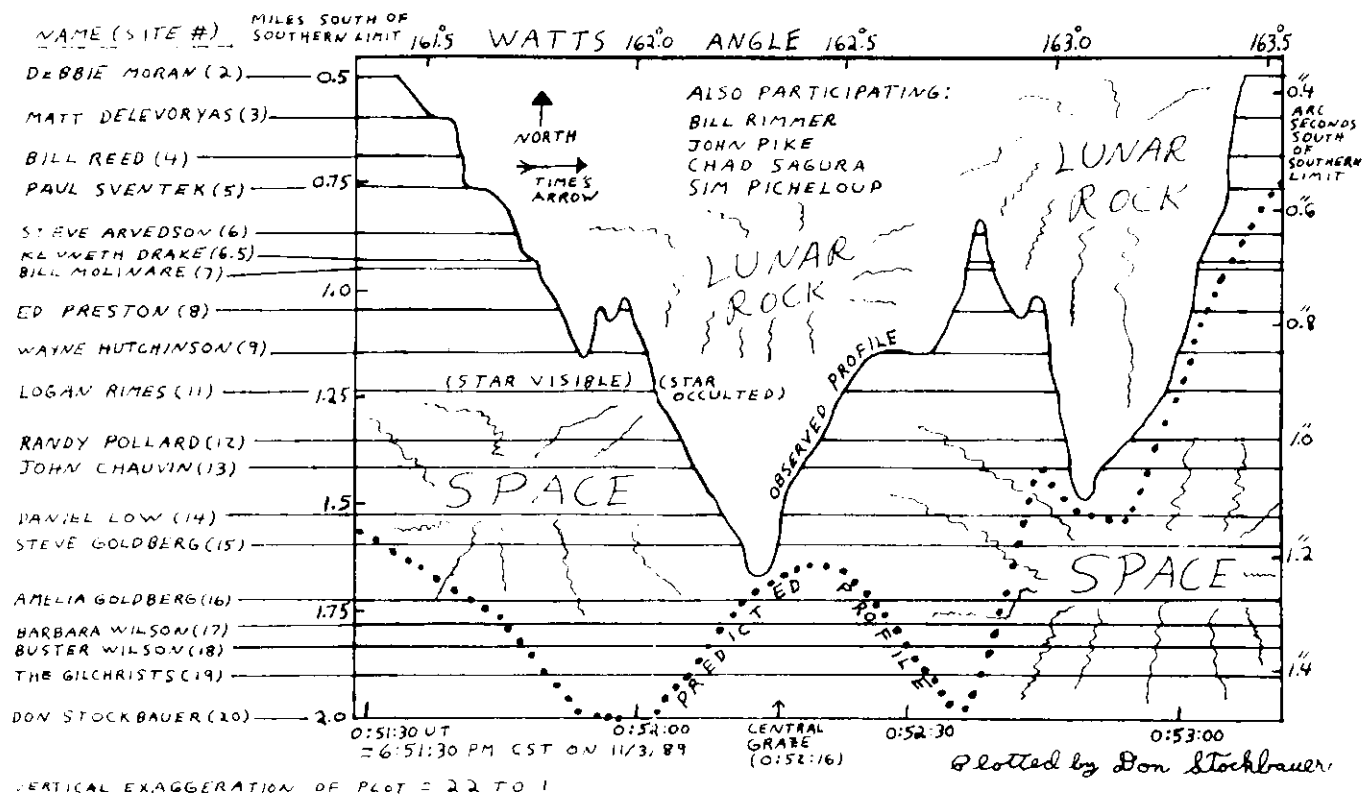 NAME (SITE #)
MILES SOUTH OF
SOUTHERN LIMIT
WATTS ANGLE
161.°5
162.°0
162.°5
163.°0
163.°5
DEBBIE MORAN (2)
MATT DELEVORYAS (3)
BILL REED (4)
PAUL SVENTEK (5)
STEVE ARVEDSON (6)
KENNETH DRAKE (6.5)
BILL MOLINARE (7)
ED PRESTON (8)
WAYNE HUTCHINSON (9)
LOGAN RIMES (11)
RANDY POLLARD (12)
JOHN CHAUVIN (13)
DANIEL LOW (14)
STEVE GOLDBERG (15)
AMELIA GOLDBERG (16)
BARBARA WILSON (17)
BUSTER WILSON (18)
THE GILCHRISTS (19)
DON STOCKBAUER (20)
0.5
0.75
1.0
1.25
1.5
1.75
2.0
NORTH
TIME'S
ARROW
ALSO PARTICIPATING:
BILL RIMMER
JOHN PIKE
CHAD SAGURA
SIM PICHELOUP
LUNAR
ROCK
LUNAR
ROCK
(STAR VISIBLE)
(STAR
OCCULTED)
OBSERVED PROFILE
SPACE
SPACE
PREDICTED PROFILE
0."4
ARC
SECONDS
SOUTH
OF
SOUTHERN
LIMIT
0."6
0."8
1."0
1."2
1."4
0:51:30 UT
=6:51:30 PM CST ON 11/3/89
0:52:00
CENTRAL
GRAZE
(0:52:16)
0:52:30
0:53:00
Plotted by Don Stockbauer
VERTICAL EXAGGERATION OF PLOT = 22 TO 1